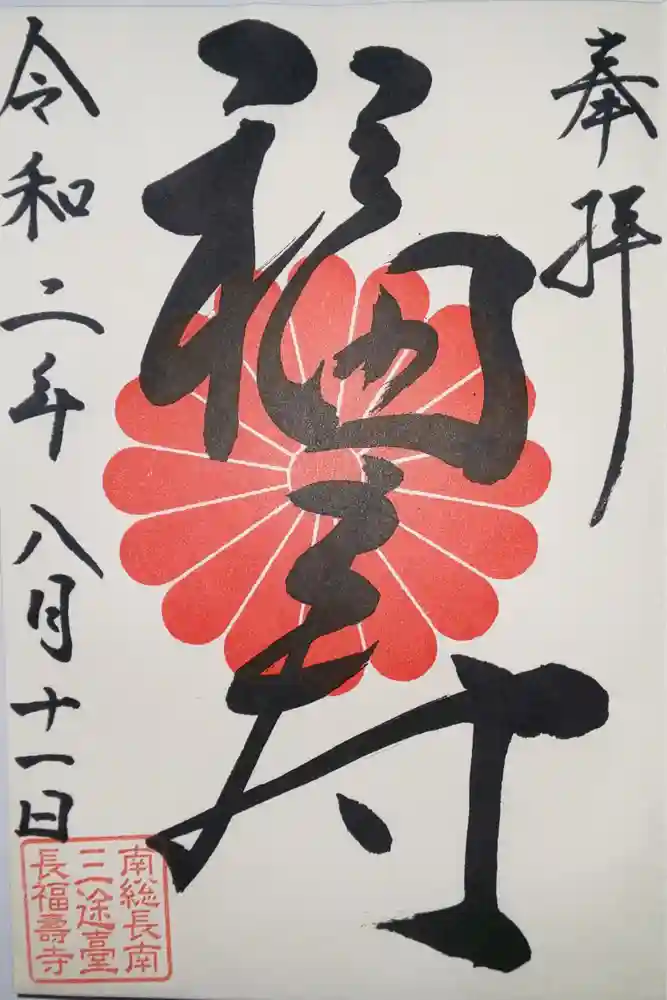 奉拝
福寿
令和二年八月十一日
南総長南
三途臺
長福壽寺